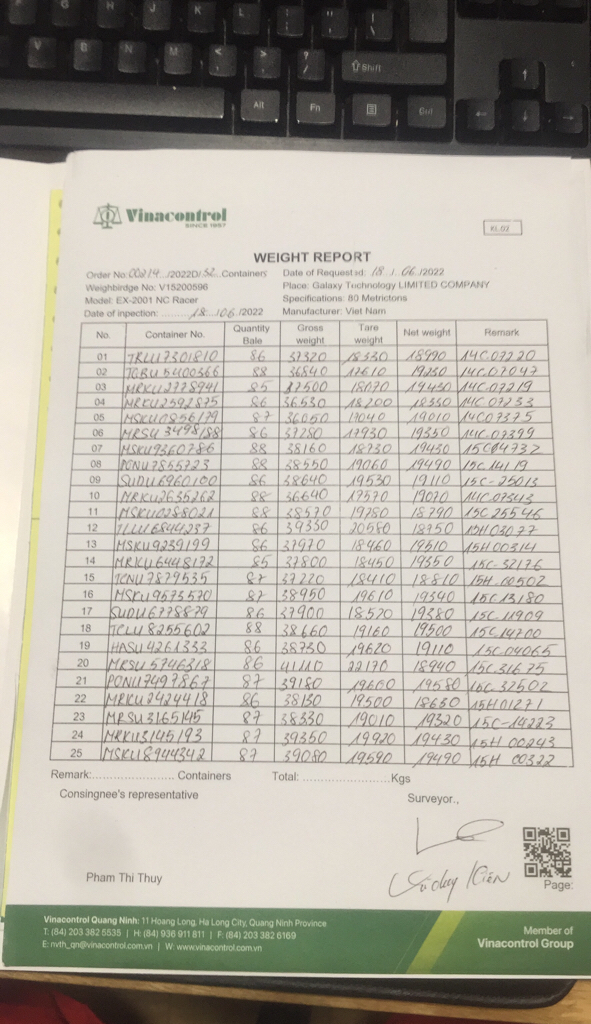 Alt
Fn
Ctrl
Shift
Vinacontrol
SINCE 1957
KL.02
WEIGHT REPORT
Order No: 00214 /2022D/ 52 Containers Date of Request: 18 / 06 /2022
Weighbirdge No: V15200596 Place: Galaxy Technology LIMITED COMPANY
Model: EX-2001 NC Racer Specifications: 80 Metrictons
Date of inpection: ......... 18 /06 /2022 Manufacturer: Viet Nam
No. Container No. Quantity Bale Gross weight Tare weight Net weight Remark
01 TRLU7301810 86 37320 18330 18990 14C.07220
02 TGBU5400366 88 36840 17610 19230 14C.07047
03 MRKU2778941 85 37500 18070 19430 14C.07219
04 MRKU2592875 86 36530 18200 18330 14C.07233
05 MSKU0856179 87 36050 17040 19010 14C07375
06 MRSU3498188 86 37280 17930 19350 14C.07399
07 MSKU9360786 88 38160 18730 19430 15C04732
08 PONU7855723 88 38550 19060 19490 15C14119
09 SUDU6960100 86 38640 19530 19110 15C-25013
10 MRKU2635262 88 36640 17570 19070 14C.07343
11 MSKU0285021 88 38570 19780 18790 15C25546
12 TLLU6844287 86 39330 20580 18750 15H03077
13 MSKU9239199 86 37970 18460 19510 15H00314
14 MRKU6448172 85 37800 18450 19350 15C-32176
15 TCNU7879535 87 37220 18410 18810 15H.00502
16 MSKU9573570 87 38950 19610 19340 15C13180
17 SUDU6778879 86 37900 18520 19380 15C.11909
18 TCLU8255602 88 38660 19160 19500 15C14700
19 HASU4261333 86 38730 19620 19110 15C.04065
20 MRSU5746318 86 41110 22170 18940 15C.31675
21 PONU7497867 87 39180 19600 19580 15C.32502
22 MRKU2424418 86 38130 19500 18630 15H01271
23 MRSU3165145 87 38330 19010 19320 15C-14223
24 MRKU3145193 87 39350 19920 19430 15H 00243
25 MSKU8944342 87 39080 19590 19490 15H 00322
Remark:........................ Containers Total: ......................... Kgs
Consingnee's representative Surveyor.,
Pham Thi Thuy
Page:
Vinacontrol Quang Ninh: 11 Hoang Long, Ha Long City, Quang Ninh Province
T: (84) 203 382 5535 | H: (84) 936 911 811 | F: (84) 203 382 6169
E: nvth_qn@vinacontrol.com.vn | W: www.vinacontrol.com.vn
Member of
Vinacontrol Group